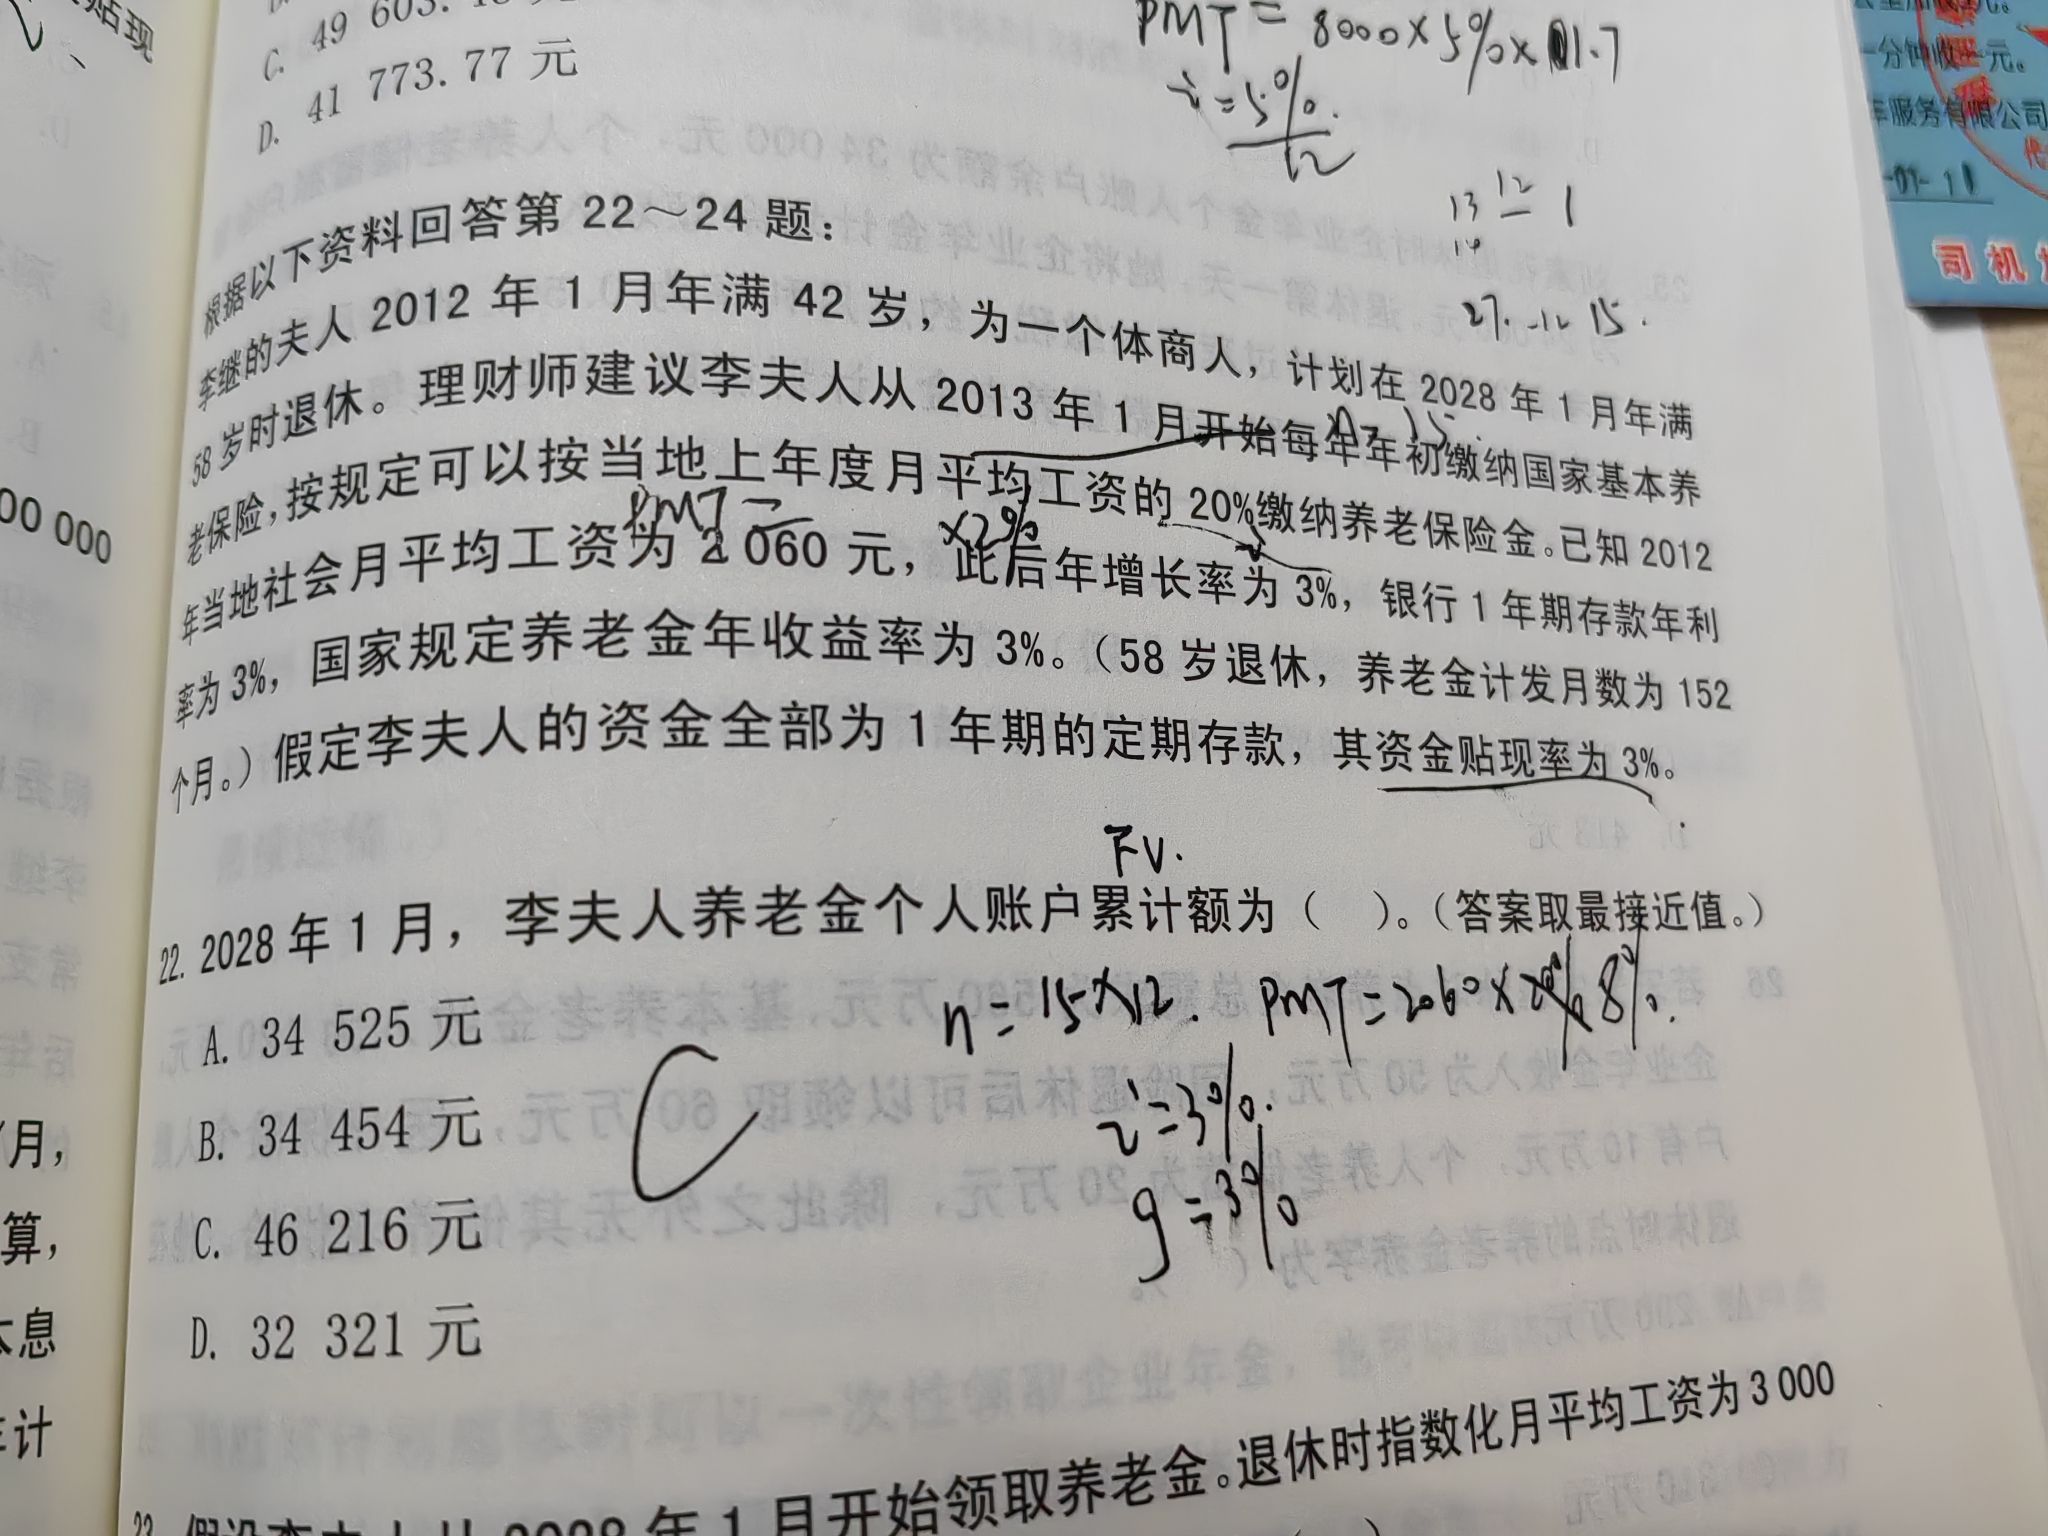 贴现
C. 49 603.
D. 41 773.77 元
PMT = 8000×5%×
i = 5%
12
根据以下资料回答第 22～24 题：
13 12 1
27. 12 15.
李继的夫人 2012 年 1 月年满 42 岁，为一个体商人，计划在 2028 年 1 月年满
58 岁时退休。理财师建议李夫人从 2013 年 1 月开始每年年初缴纳国家基本养
老保险，按规定可以按当地上年度月平均工资的 20%缴纳养老保险金。已知 2012
PMT =
年当地社会月平均工资为 2 060 元，此后年增长率为 3%，银行 1 年期存款年利
率为 3%，国家规定养老金年收益率为 3%。（58 岁退休，养老金计发月数为 152
个月。）假定李夫人的资金全部为 1 年期的定期存款，其资金贴现率为 3%。
FV.
22. 2028 年 1 月，李夫人养老金个人账户累计额为（ ）。（答案取最接近值。）
n = 15×12. PMT = 2060× 8%.
A. 34 525 元
i = 3%.
B. 34 454 元
C
g = 3%
C. 46 216 元
D. 32 321 元
月开始领取养老金。退休时指数化月平均工资为 3 000
00 000
月，
算，
本息
计
一分钟收一元。
车服务有限公司
司 机